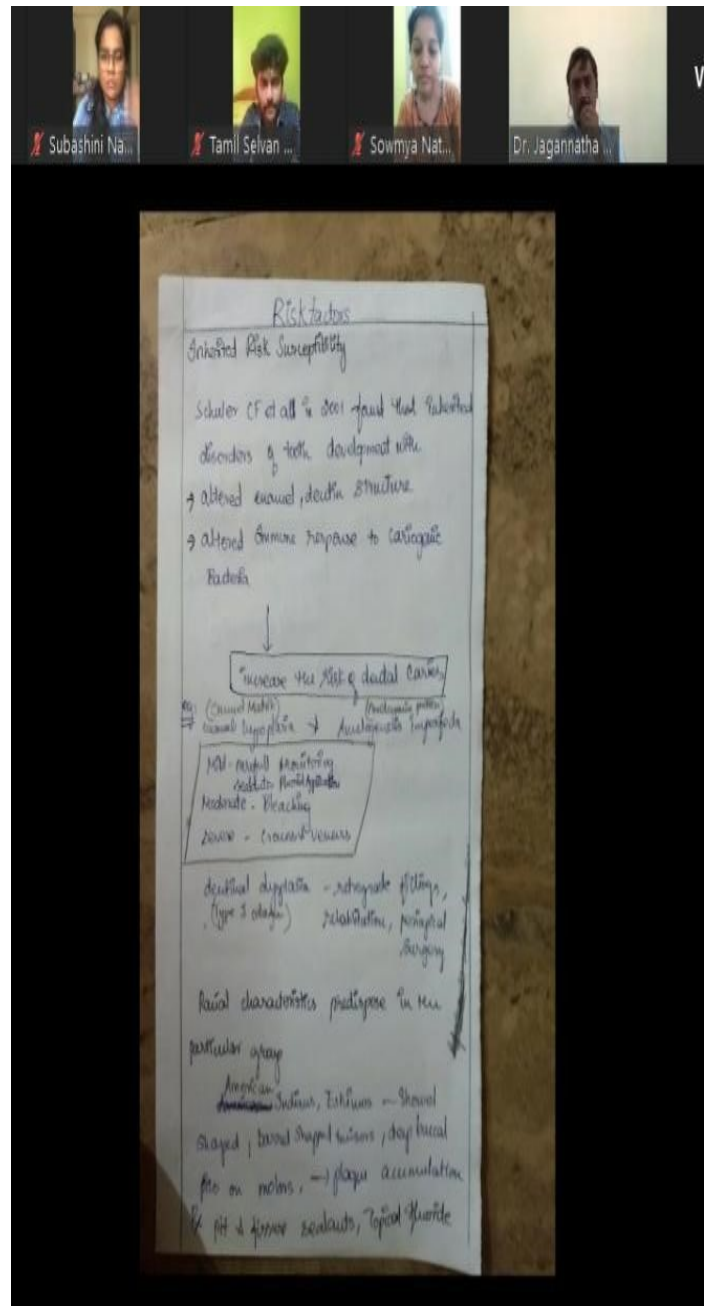 Subashini Na...
Tamil Selvan ...
Sowmya Nat...
Dr. Jagannatha ...
V
Risk factors
Inherited Risk Susceptibility
Schuler CF et all in 2001 found that inherited
disorders of tooth develpment with
→ altered enamel, dentin structure
→ altered immune response to cariogenic
Bacteria
increase the risk of dental caries
(Enamel Matrix)
Amelogenesis Imperfecta
Mild - carefull monitoring
Moderate - Bleaching
Severe - crowns & veneers
dentinal dysplasia - retrograde fillings,
(Type I collagen) periapical
surgery
Racial characteristics predispose in the
particular group
American
Indians, Eskimos - Shovel
shaped, barrel shaped incisors, deep buccal
pits on molars, → plaque accumulation
Rx pit & fissure sealants, Topical fluoride